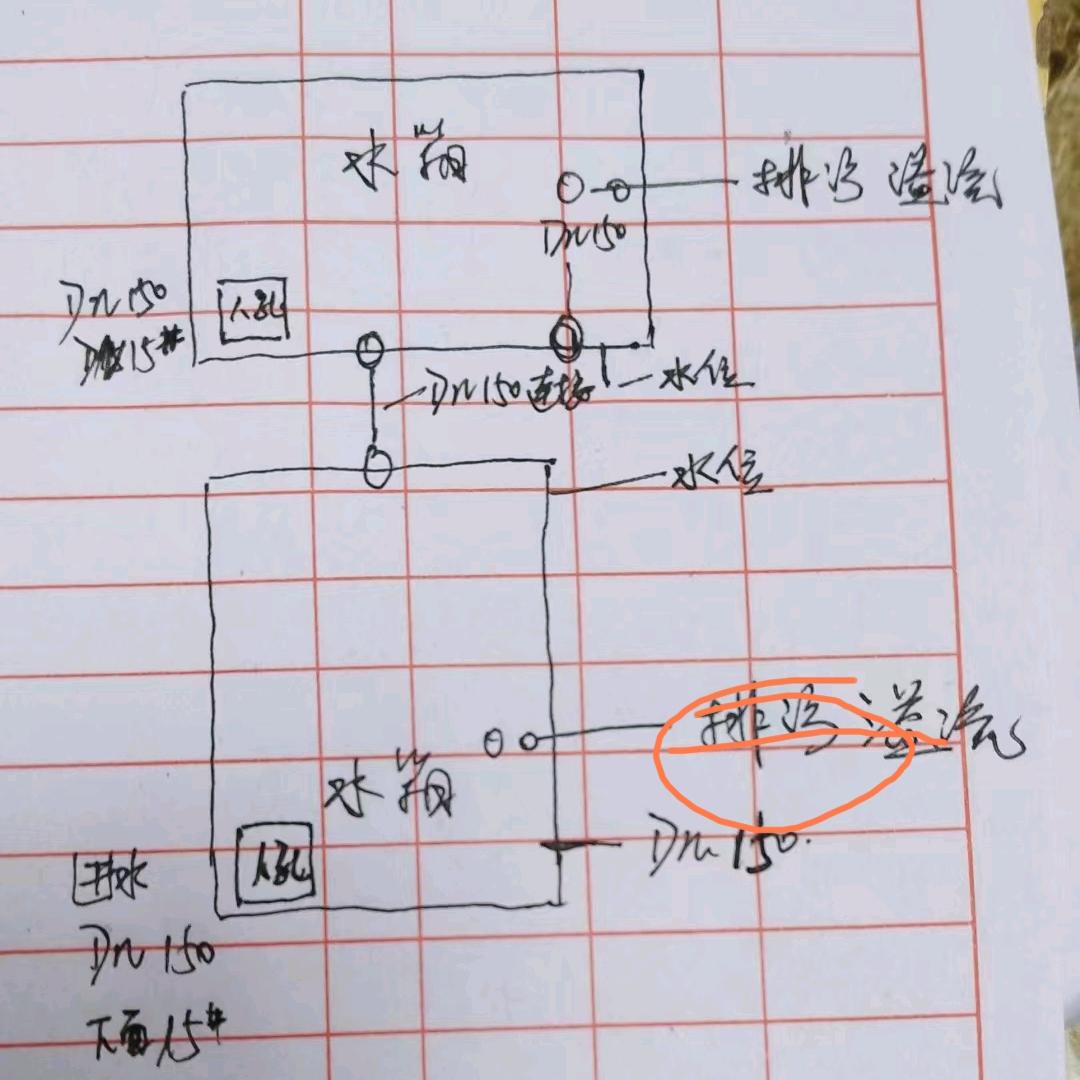 水箱
排污 溢流
DN150
DN150
人孔
15#
DN150连接
水位
水位
排污 溢流
水箱
DN150.
人孔
进水
DN150
下面15#